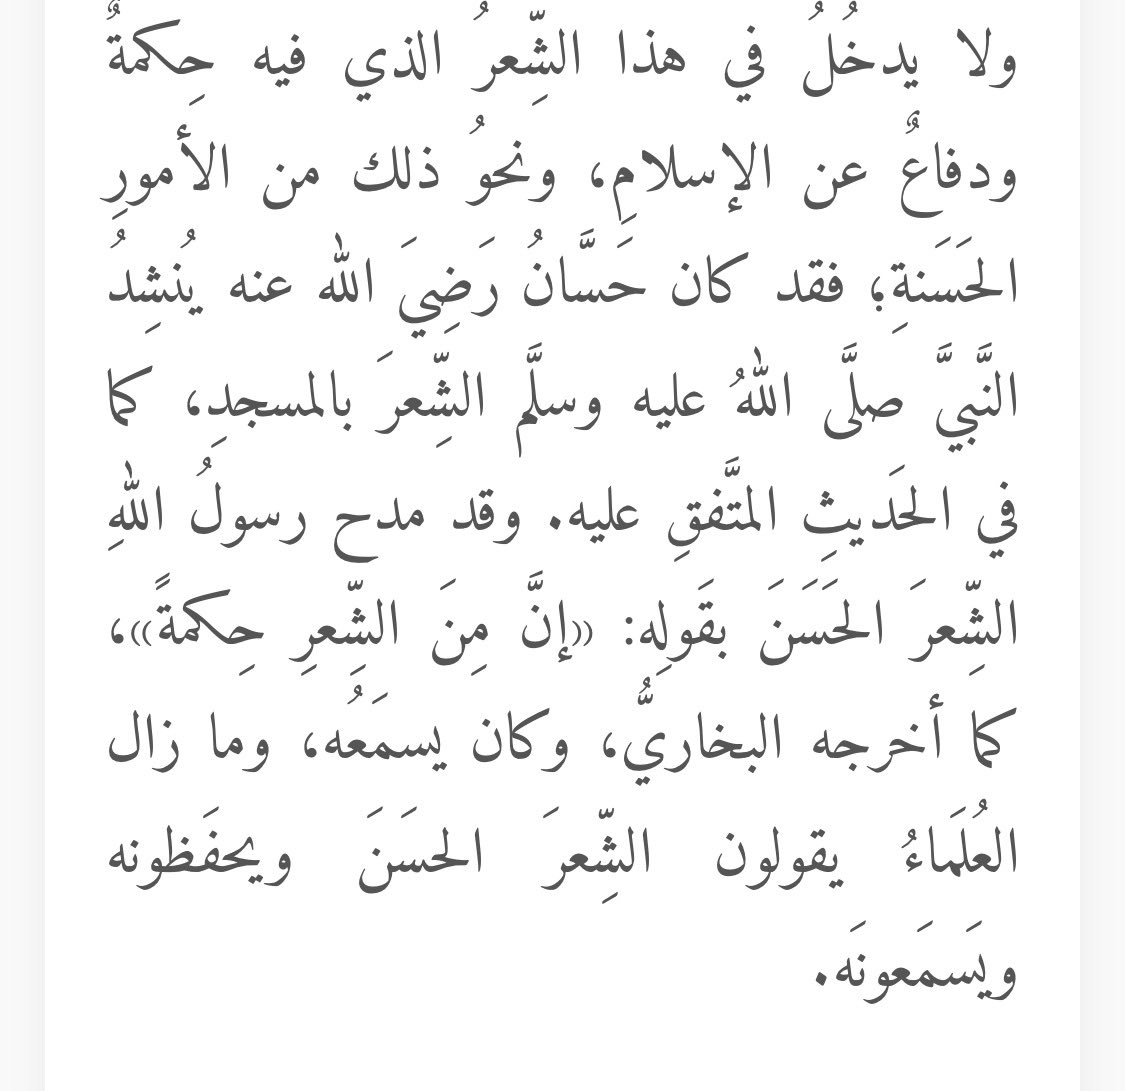 ولا يدخُلُ في هذا الشِّعرُ الذي فيه حِكمةٌ
ودفاعٌ عن الإسلامِ، ونحوُ ذلك من الأمورِ
الحَسَنةِ؛ فقد كان حَسَّانُ رَضِيَ الله عنه يُنشِدُ
النَّبيَّ صلَّى اللهُ عليه وسلَّم الشِّعرَ بالمسجدِ، كما
في الحَديثِ المتَّفقِ عليه. وقد مدح رسولُ اللهِ
الشِّعرَ الحَسَنَ بقَولِه: «إنَّ مِنَ الشِّعرِ حِكمةً»،
كما أخرجه البخاريُّ، وكان يسمَعُه، وما زال
العُلَماءُ يقولون الشِّعرَ الحسَنَ ويحفَظونه
ويَسمَعونَه.